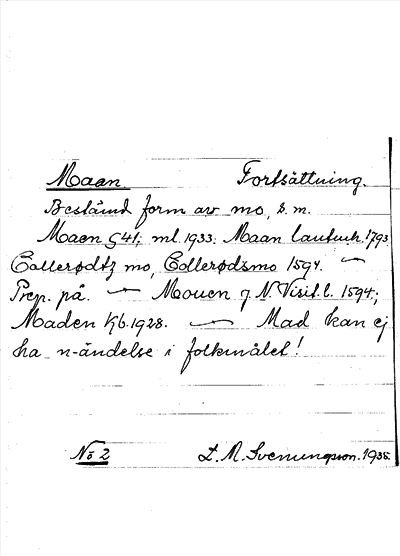 Maan Fortsättning.
Bestämd form av mo, s. m.
Maen G41; ml. 1933. Maan lantuch. 1793
Collerødtz mo, Collerødsmo 1594. —
Prep. på. — Mouen 7 N. Visit. l. 1594;
Maden kjb. 1928. — Mad kan ej
ha n-ändelse i folkmålet!
No 2 L. M. Svenungsson. 1935.